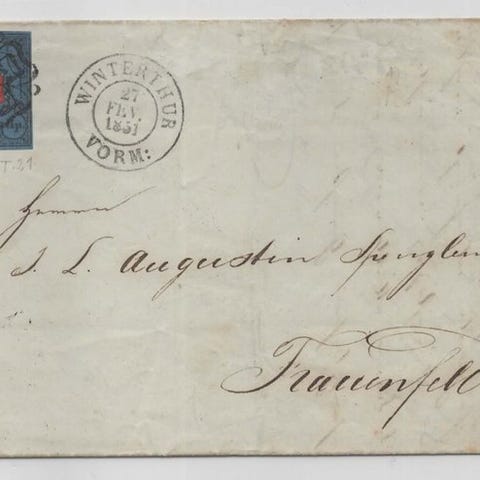 WINTERTHUR
27
FEV.
1851
VORM:
T.21
Herrn
J. L. Augustin Spengler
Frauenfeld